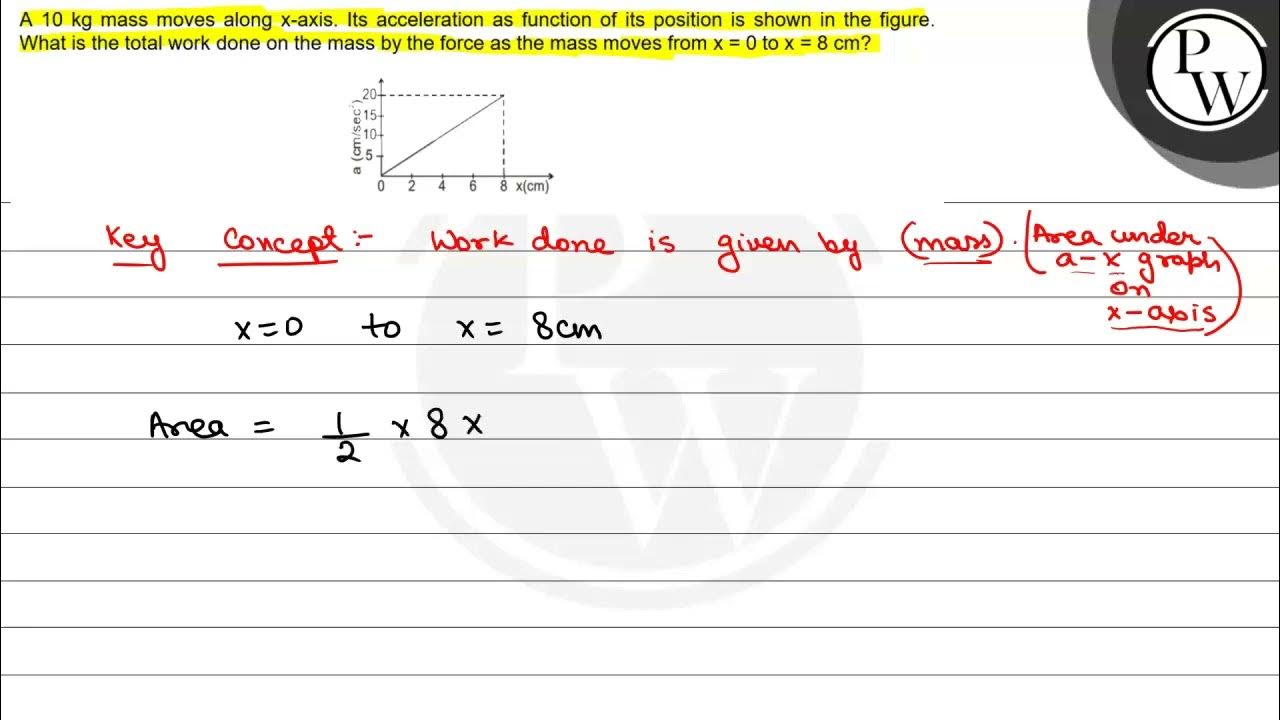 A 10 kg mass moves along x-axis. Its acceleration as function of its position is shown in the figure.
What is the total work done on the mass by the force as the mass moves from x = 0 to x = 8 cm?
P
W
20
15
10
5
a (cm/sec²)
0 2 4 6 8 x(cm)
Key Concept :- Work done is given by (mass). (Area under
a-x graph
on
x-axis)
x=0 to x= 8cm
Area = 1/2 x 8 x
P
W